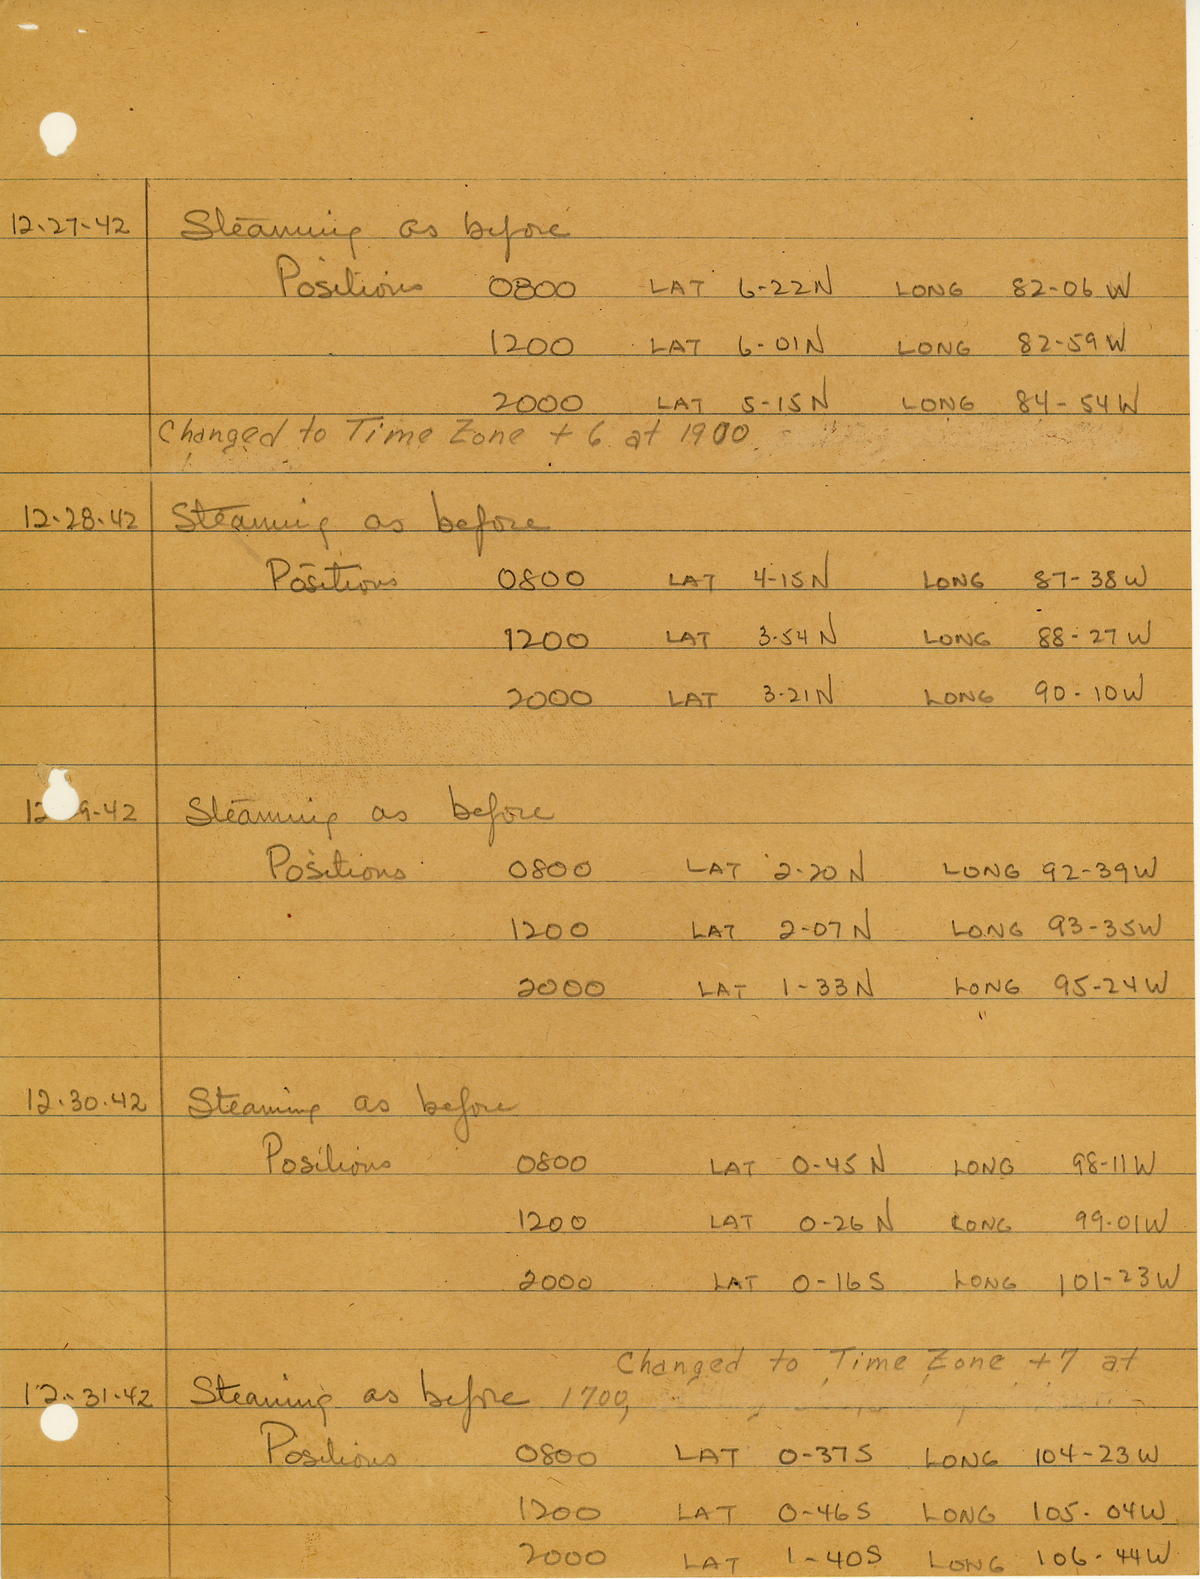 12-27-42 Steaming as before
Positions 0800 LAT 6-22N LONG 82-06W
1200 LAT 6-01N LONG 82-59W
2000 LAT 5-15N LONG 84-54W
Changed to Time Zone +6 at 1900
12-28-42 Steaming as before
Positions 0800 LAT 4-15N LONG 87-38W
1200 LAT 3-54N LONG 88-27W
2000 LAT 3-21N LONG 90-10W
12 9-42 Steaming as before
Positions 0800 LAT 2-20N LONG 92-39W
1200 LAT 2-07N LONG 93-35W
2000 LAT 1-33N LONG 95-24W
12-30-42 Steaming as before
Positions 0800 LAT 0-45N LONG 98-11W
1200 LAT 0-26N LONG 99-01W
2000 LAT 0-16S LONG 101-23W
Changed to Time Zone +7 at
12-31-42 Steaming as before 1700,
Positions 0800 LAT 0-37S LONG 104-23W
1200 LAT 0-46S LONG 105-04W
2000 LAT 1-40S LONG 106-44W